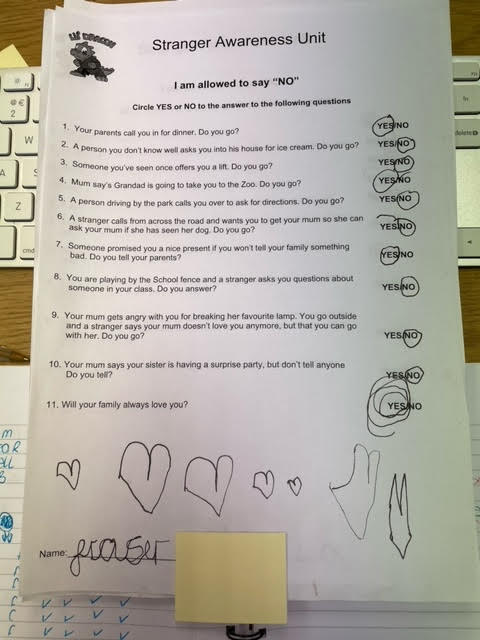 LIL DRAGON
Stranger Awareness Unit
I am allowed to say "NO"
Circle YES or NO to the answer to the following questions
1. Your parents call you in for dinner. Do you go? YES/NO
2. A person you don't know well asks you into his house for ice cream. Do you go? YES/NO
3. Someone you've seen once offers you a lift. Do you go? YES/NO
4. Mum say's Grandad is going to take you to the Zoo. Do you go? YES/NO
5. A person driving by the park calls you over to ask for directions. Do you go? YES/NO
6. A stranger calls from across the road and wants you to get your mum so she can YES/NO
ask your mum if she has seen her dog. Do you go?
7. Someone promised you a nice present if you won't tell your family something YES/NO
bad. Do you tell your parents?
8. You are playing by the School fence and a stranger asks you questions about
someone in your class. Do you answer? YES/NO
9. Your mum gets angry with you for breaking her favourite lamp. You go outside
and a stranger says your mum doesn't love you anymore, but that you can go
with her. Do you go? YES/NO
10. Your mum says your sister is having a surprise party, but don't tell anyone
Do you tell? YES/NO
11. Will your family always love you? YES/NO
Name: fraser
@ €
2
W
A
S
Z
cmd
delete